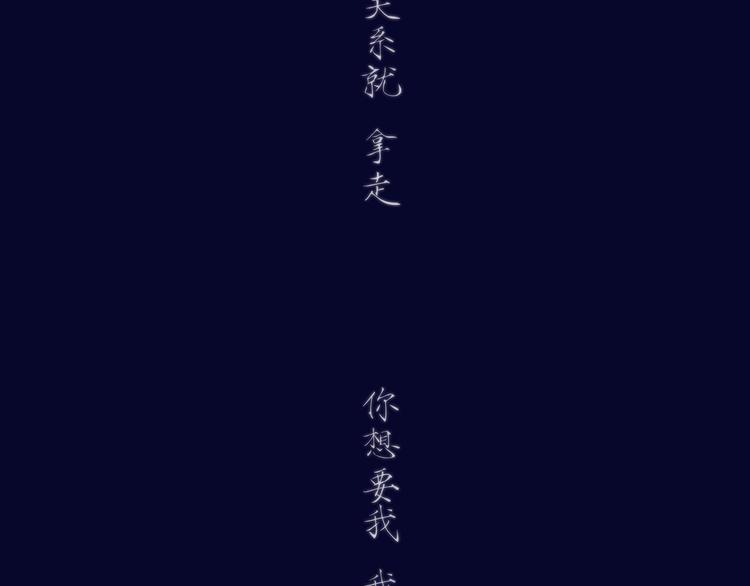 关系就 拿走
你想要我 我